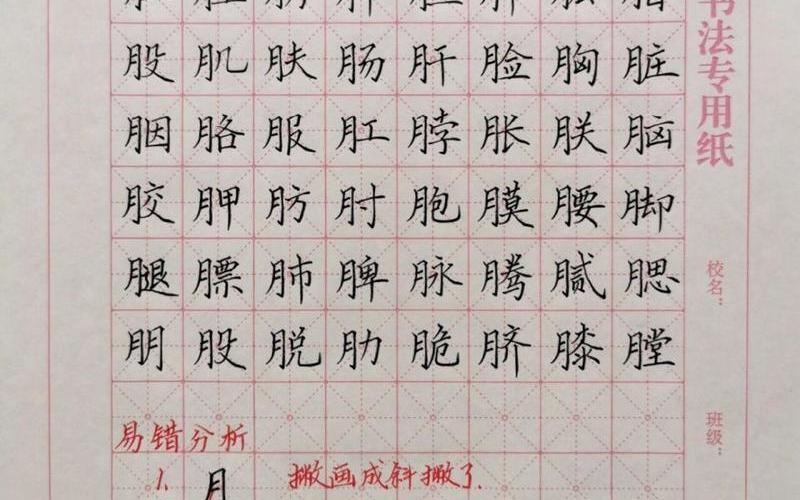 股肌肤肠肝脸胸脏
胭胳服肛脖胀朕脑
胶胛肪肘胞膜腰脚
腿膘肺脾脉腾腻腮
朋股脱肋脆脐膝膛
易错分析
1. 月 撇画成斜撇了.
书法专用纸
校名：
班级：